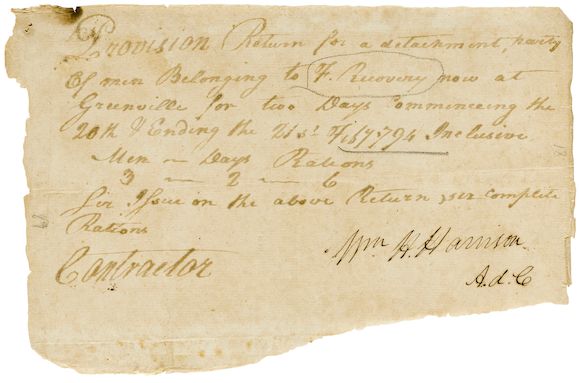 Provision Return for a detachment party
Of men Belonging to F. Recovery now at
Greenville for two Days Commencing the
20th & Ending the 21st 1794 Inclusive
Men — Days Rations
3 — 2 — 6
Sir Issue on the above Return complete
Rations
Wm H. Harrison
Contractor
A.d.C